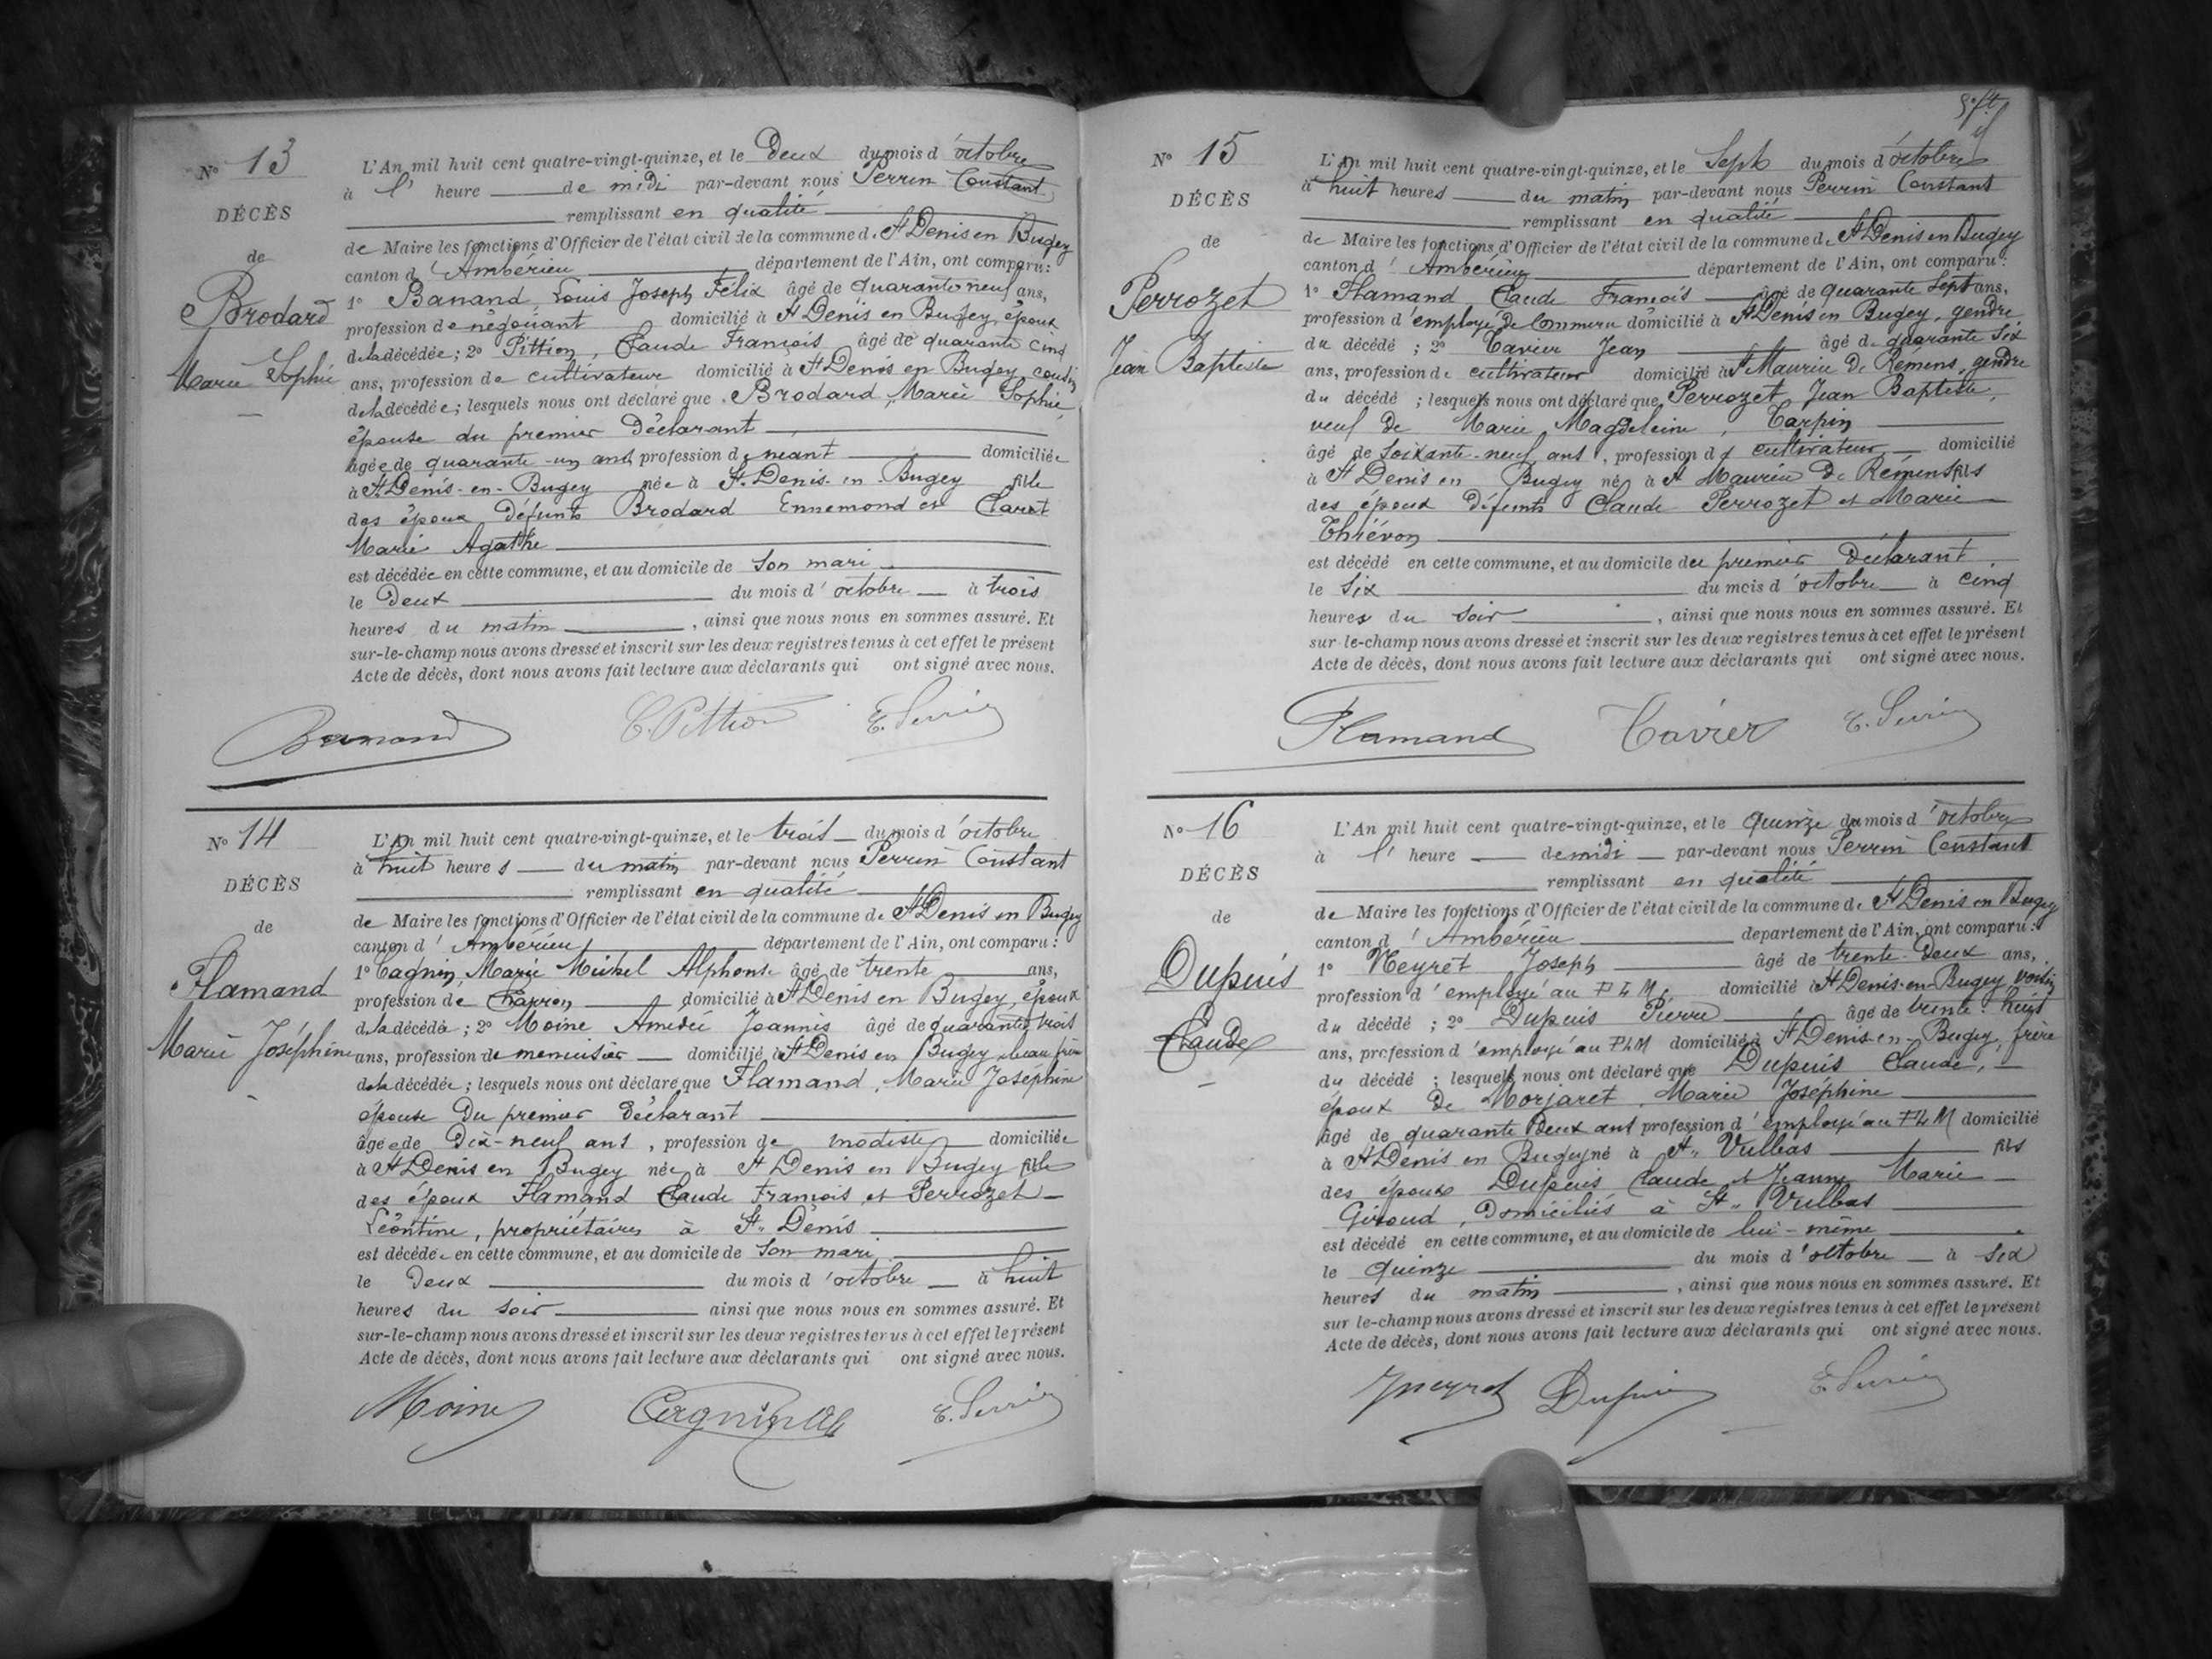 N° 13
DÉCÈS
de
Brodard
Marie Sophie
L'An mil huit cent quatre-vingt-quinze, et le Deux du mois d'octobre
à l' heure de midi par-devant nous Perrin Constant
remplissant en qualité
de Maire les fonctions d'Officier de l'état civil de la commune de St Denis en Bugey
canton d'Ambérieu département de l'Ain, ont comparu:
1° Banand, Louis Joseph Félix âgé de quarante neuf ans,
profession de négociant domicilié à St Denis en Bugey, époux
de la décédée; 2° Pittion, Claude François âgé de quarante cinq
ans, profession de cultivateur domicilié à St Denis en Bugey, cousin
de la décédée; lesquels nous ont déclaré que Brodard, Marie Sophie,
épouse du premier Déclarant
âgée de quarante-un ans, profession de néant domiciliée
à St Denis-en-Bugey née à St. Denis-en-Bugey fille
des époux défunts Brodard Ennemond et Claret
Marie Agathe
est décédée en cette commune, et au domicile de son mari
le Deux du mois d'octobre à trois
heures du matin, ainsi que nous nous en sommes assuré. Et
sur-le-champ nous avons dressé et inscrit sur les deux registres tenus à cet effet le présent
Acte de décès, dont nous avons fait lecture aux déclarants qui ont signé avec nous.
Banand C. Pittion C. Perrin
N° 14
DÉCÈS
de
Flamand
Marie Joséphine
L'An mil huit cent quatre-vingt-quinze, et le trois du mois d'octobre
à huit heures du matin par-devant nous Perrin Constant
remplissant en qualité
de Maire les fonctions d'Officier de l'état civil de la commune de St Denis en Bugey
canton d'Ambérieu département de l'Ain, ont comparu:
1° Cagnin, Marie Michel Alphonse âgé de trente ans,
profession de domicilié à St Denis en Bugey, époux
de la décédée; 2° Moine Amédée Joannis âgé de quarante, trois
ans, profession de menuisier domicilié à St Denis en Bugey, beau frère
de la décédée; lesquels nous ont déclaré que Flamand, Marie Joséphine
épouse Du premier Déclarant
âgée de Dix-neuf ans, profession de modiste domiciliée
à St Denis en Bugey née à St Denis en Bugey fille
des époux Flamand Claude François et Perrozet
Léontine, propriétaires à St. Denis
est décédée en cette commune, et au domicile de son mari
le Deux du mois d'octobre à huit
heures du soir ainsi que nous nous en sommes assuré. Et
sur-le-champ nous avons dressé et inscrit sur les deux registres tenus à cet effet le présent
Acte de décès, dont nous avons fait lecture aux déclarants qui ont signé avec nous.
Moine Cagnin C. Perrin
N° 15
DÉCÈS
de
Perrozet
Jean Baptiste
L'An mil huit cent quatre-vingt-quinze, et le Sept du mois d'octobre
à huit heures du matin par-devant nous Perrin Constant
remplissant en qualité
de Maire les fonctions d'Officier de l'état civil de la commune de St Denis en Bugey
canton d'Ambérieu département de l'Ain, ont comparu:
1° Flamand, Claude François âgé de quarante Sept ans,
profession d'employé de Commerce domicilié à St Denis en Bugey, gendre
du décédé; 2° Tavier Jean âgé de quarante six
ans, profession de cultivateur domicilié à St Maurice de Rémens, gendre
du décédé; lesquels nous ont déclaré que Perrozet, Jean Baptiste,
veuf de Marie Magdeleine, Carpin
âgé de Soixante-neuf ans, profession de cultivateur domicilié
à St Denis en Bugey né à St Maurice De Rémens fils
des époux Défunts Claude Perrozet et Marie
Thiévon
est décédé en cette commune, et au domicile du premier Déclarant
le six du mois d'octobre à cinq
heures du soir, ainsi que nous nous en sommes assuré. Et
sur-le-champ nous avons dressé et inscrit sur les deux registres tenus à cet effet le présent
Acte de décès, dont nous avons fait lecture aux déclarants qui ont signé avec nous.
Flamand Tavier C. Perrin
N° 16
DÉCÈS
de
Dupuis
Claude
L'An mil huit cent quatre-vingt-quinze, et le Quinze du mois d'octobre
à l' heure de midi par-devant nous Perrin Constant
remplissant en qualité
de Maire les fonctions d'Officier de l'état civil de la commune de St Denis en Bugey
canton d'Ambérieu département de l'Ain, ont comparu:
1° Neyret Joseph âgé de trente-Deux ans,
profession d'employé au PLM, domicilié à St Denis-en-Bugey voisin
du décédé; 2° Dupuis Pierre âgé de trente-huit
ans, profession d'employé au PLM domicilié à St Denis-en-Bugey, frère
du décédé; lesquels nous ont déclaré que Dupuis Claude,
époux de Morjaret, Marie Joséphine
âgé de quarante Deux ans profession d'employé au PLM domicilié
à St Denis en Bugey né à St. Vulbas fils
des époux Dupuis Claude et Jeanne Marie
Giroud, Domiciliés à St. Vulbas
est décédé en cette commune, et au domicile de lui-même
le quinze du mois d'octobre à six
heures du matin, ainsi que nous nous en sommes assuré. Et
sur le-champ nous avons dressé et inscrit sur les deux registres tenus à cet effet le présent
Acte de décès, dont nous avons fait lecture aux déclarants qui ont signé avec nous.
Neyret Dupuis C. Perrin